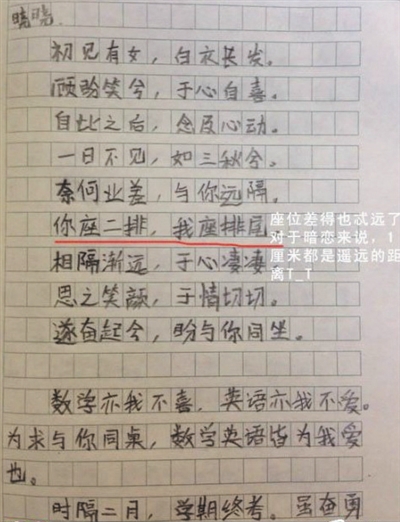 晓晓
初见有女，白衣长发。
顾盼笑兮，于心自喜。
自此之后，念及心动。
一日不见，如三秋兮。
奈何业差，与你远隔。
你座二排，我座排尾。
座位差得也忒远了
对于暗恋来说，1
厘米都是遥远的距
离T_T
相隔渐远，于心凄凄
思之笑颜，于情切切。
遂奋起兮，盼与你同坐。
数学亦我不喜，英语亦我不爱。
为求与你同桌，数学英语皆为我爱
也。
时隔二月，学期终考。虽奋勇